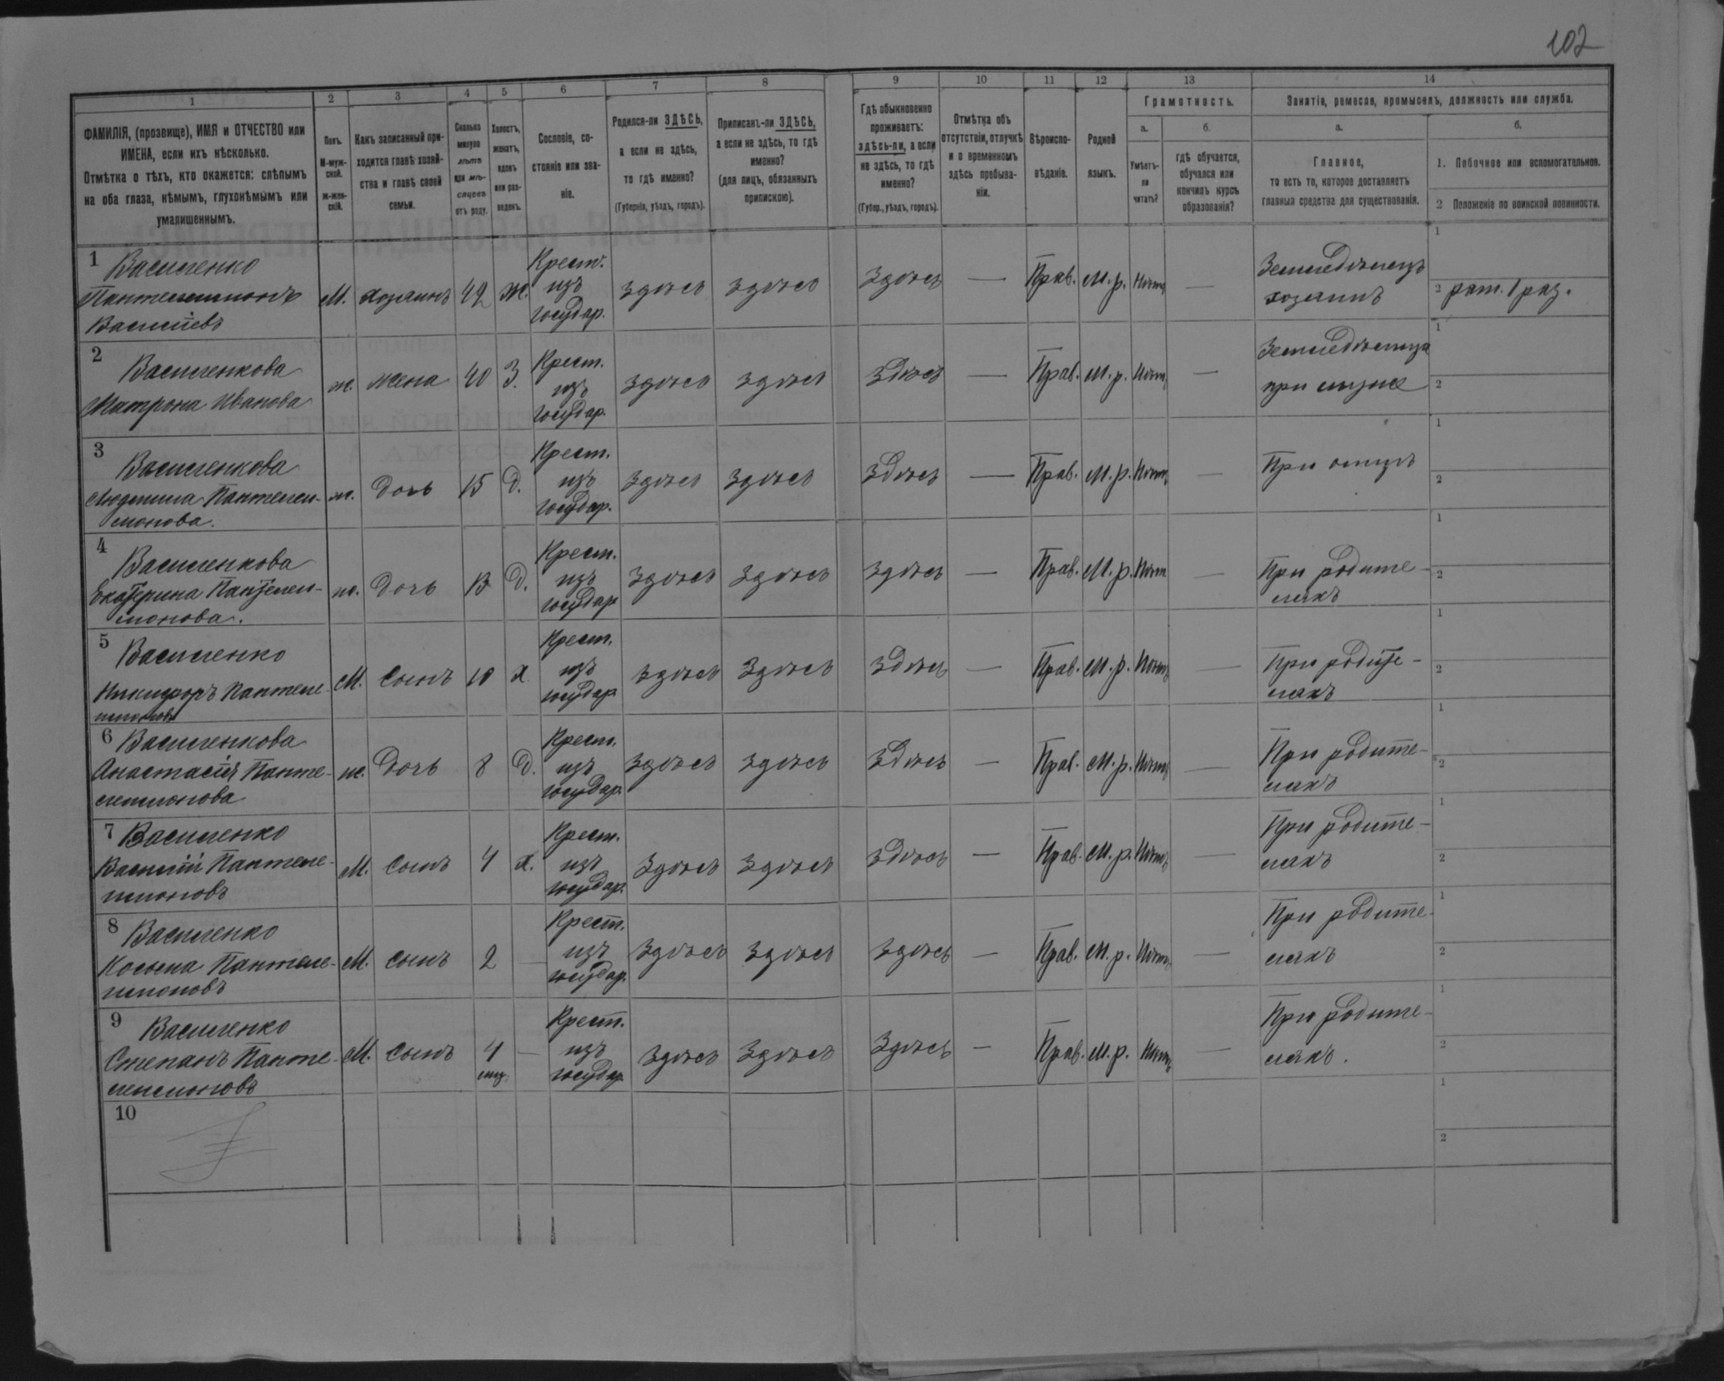 102
1 2 3 4 5 6 7 8 9 10 11 12 13 14
ФАМИЛІЯ, (прозвище), ИМЯ и ОТЧЕСТВО или
ИМЕНА, если ихъ нѣсколько.
Отмѣтка о тѣхъ, кто окажется: слѣпымъ
на оба глаза, нѣмымъ, глухонѣмымъ или
умалишеннымъ.
Полъ.
М-муж-
ской.
Ж-жен-
скій.
Какъ записанный при-
ходится главѣ хозяй-
ства и главѣ своей
семьи.
Сколько
минуло
лѣтъ
или мѣ-
сяцевъ
отъ роду.
Холостъ,
женатъ,
вдовъ
или раз-
веденъ.
Сословіе, со-
стояніе или зва-
ніе.
Родился-ли ЗДѢСЬ,
а если не здѣсь,
то гдѣ именно?
(Губернія, уѣздъ, городъ).
Приписанъ-ли ЗДѢСЬ,
а если не здѣсь, то гдѣ
именно?
(для лицъ, обязанныхъ
припискою).
Гдѣ обыкновенно
проживаетъ:
здѣсь-ли, а если
не здѣсь, то гдѣ
именно?
(Губер., уѣздъ, городъ).
Отмѣтка объ
отсутствіи, отлучкѣ
и о временномъ
здѣсь пребыва-
ніи.
Вѣроиспо-
вѣданіе.
Родной
языкъ.
Грамотность.
а.
Умѣетъ-
ли
читать?
б.
гдѣ обучается,
обучался или
кончилъ курсъ
образованія?
Занятіе, ремесло, промыселъ, должность или служба.
а.
Главное,
то есть то, которое доставляетъ
главныя средства для существованія.
б.
1. Побочное или вспомогательное.
2 Положеніе по воинской повинности.
1 Василенко
Пантелеимонъ
Василіевъ
М. хозяинъ 42 ж.
Крест.
изъ
государ.
здѣсь здѣсь здѣсь — Прав. М. р. Нѣтъ —
Земледѣлецъ
хозяинъ
1
2 рат. 1 раз.
2 Василенкова
Матрона Иванова
ж. жена 40 З.
Крест.
изъ
государ.
здѣсь здѣсь здѣсь — Прав. М. р. Нѣтъ —
Земледѣлица
при мужѣ
1
2
3 Василенкова
Людмила Пантелеи-
монова.
ж. Дочь 15 Д.
Крест.
изъ
государ.
здѣсь здѣсь здѣсь — Прав. М. р. Нѣтъ —
При отцѣ
1
2
4 Василенкова
Екатерина Пантелеи-
монова.
ж. Дочь 13 Д.
Крест.
изъ
государ
здѣсь здѣсь здѣсь — Прав. М. р. Нѣтъ —
При родите-
ляхъ
1
2
5 Василенко
Никифоръ Пантеле-
имоновъ
М. Сынъ 10 х
Крест.
изъ
государ
здѣсь здѣсь здѣсь — Прав. М. р. Нѣтъ —
При родите-
ляхъ
1
2
6 Василенкова
Анастасія Панте-
леимонова
ж. Дочь 8 Д.
Крест.
изъ
государ.
здѣсь здѣсь здѣсь — Прав. М. р. Нѣтъ —
При родите-
ляхъ
1
2
7 Василенко
Василій Пантеле-
имоновъ
М. Сынъ 4 х.
Крест.
изъ
государ.
здѣсь здѣсь здѣсь — Прав. М. р. Нѣтъ —
При родите-
ляхъ
1
2
8 Василенко
Косьма Пантеле-
имоновъ
М. сынъ 2 —
Крест.
изъ
государ.
здѣсь здѣсь здѣсь — Прав. М. р. Нѣтъ —
При родите-
ляхъ
1
2
9 Василенко
Степанъ Панте-
леимоновъ
М. сынъ 4 —
Крест.
изъ
государ.
здѣсь здѣсь здѣсь — Прав. М. р. Нѣтъ —
При родите-
ляхъ.
1
2
10
1
2